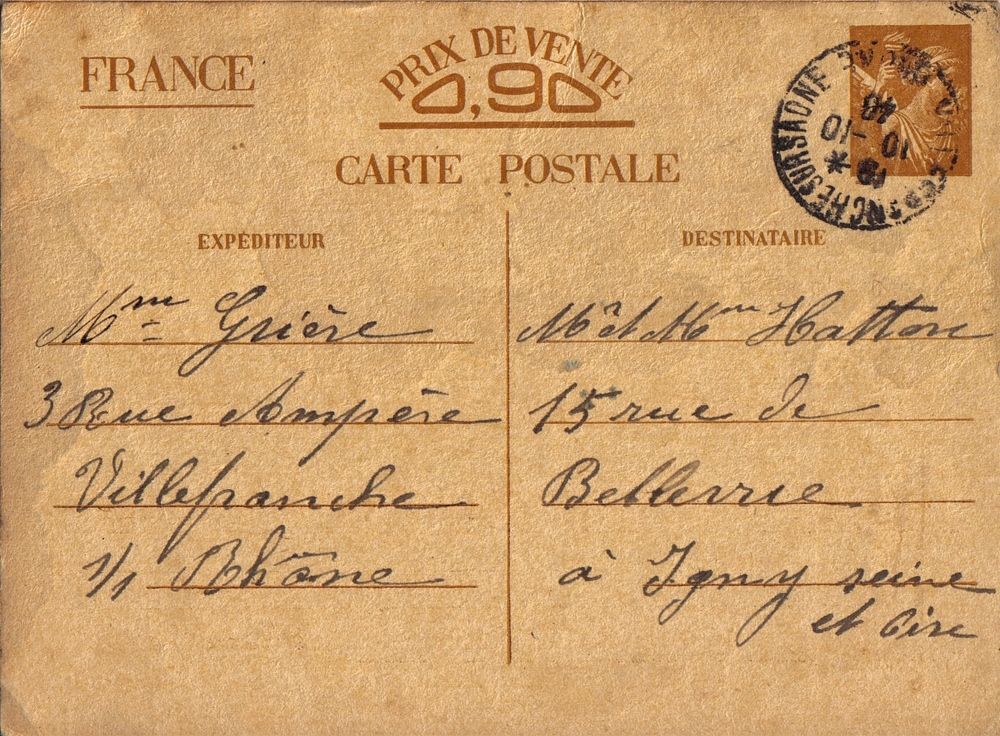 FRANCE
PRIX DE VENTE
0,90
CARTE POSTALE
EXPÉDITEUR
Mme Grière
3 Rue Ampère
Villefranche
s/s Rhône
DESTINATAIRE
Mr et Mme Hatton
15 rue de
Bellevue
à Igny seine
et Oise
VILLEFRANCHE SUR SAONE
19 *
10 - 10
40